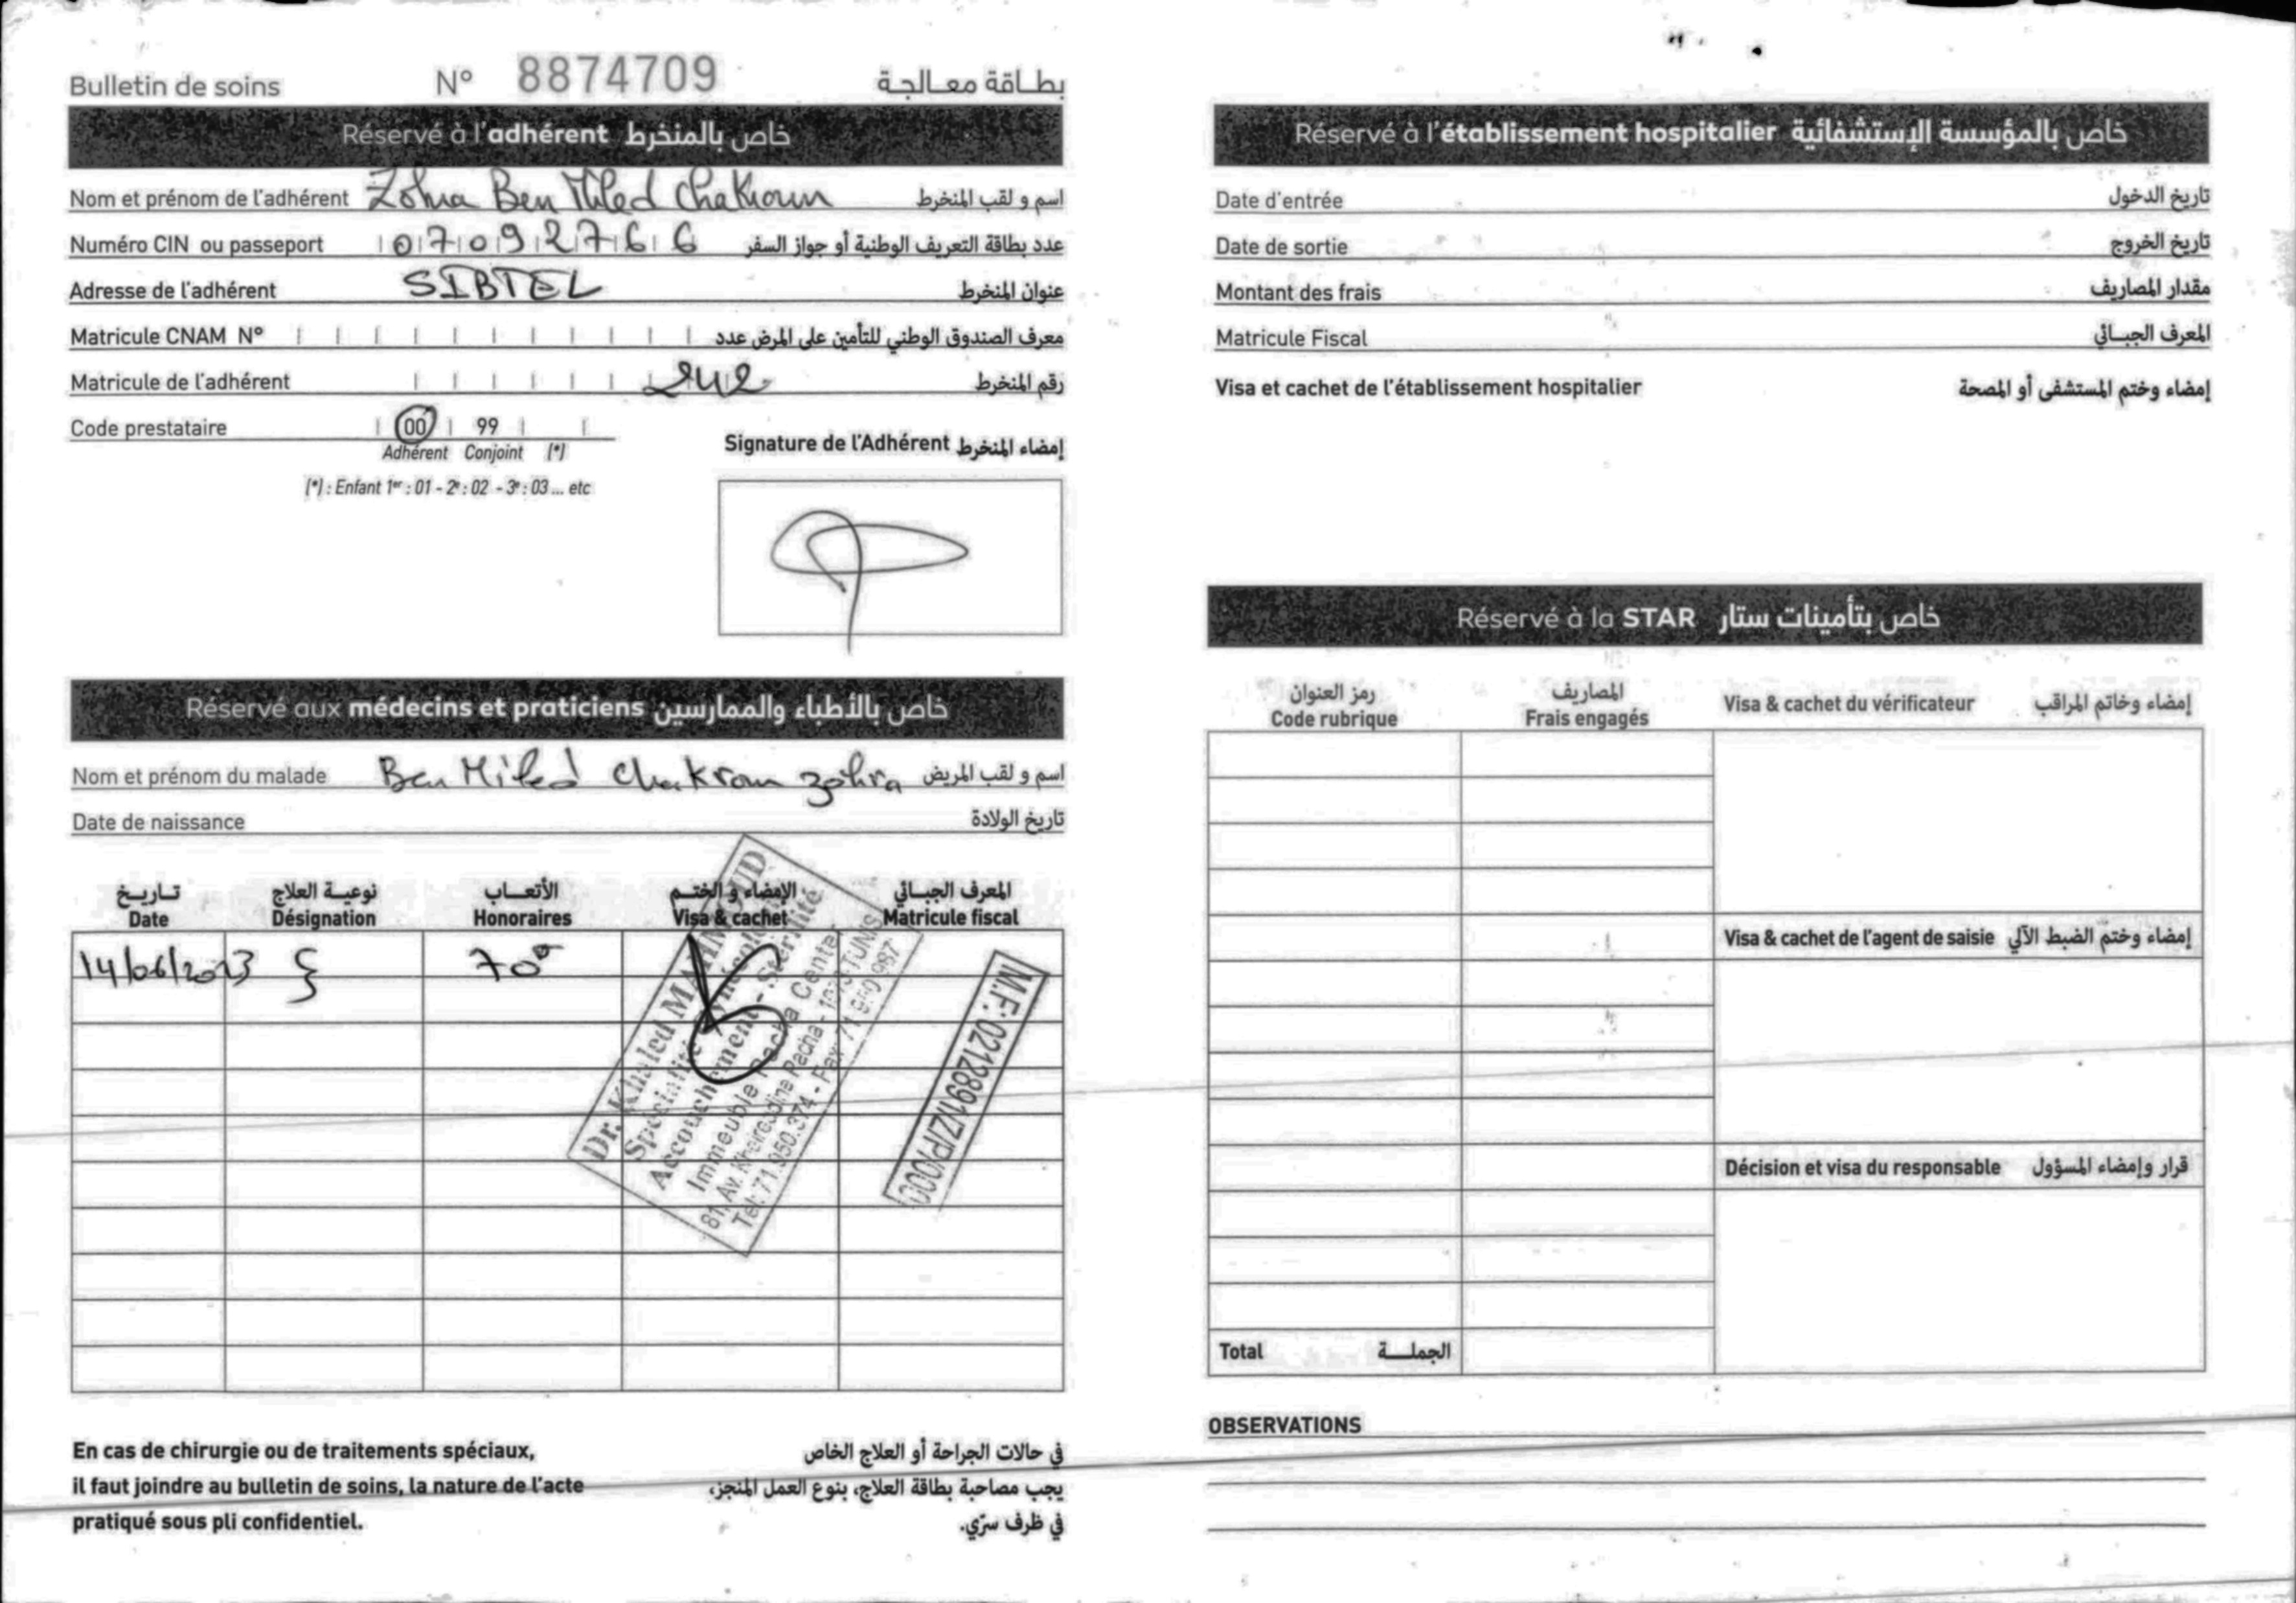 Bulletin de soins N° 8874709 بطاقة معالجة
Réservé à l'adhérent خاص بالمنخرط
Nom et prénom de l'adhérent Zohra Ben Miled Chakroun اسم و لقب المنخرط
Numéro CIN ou passeport 07092766 عدد بطاقة التعريف الوطنية أو جواز السفر
Adresse de l'adhérent SIBTEL عنوان المنخرط
Matricule CNAM N° معرف الصندوق الوطني للتأمين على المرض عدد
Matricule de l'adhérent 242 رقم المنخرط
Code prestataire 00 99
Adhérent Conjoint (*)
(*) : Enfant 1er : 01 - 2e : 02 - 3e : 03 ... etc
Signature de l'Adhérent إمضاء المنخرط
Réservé aux médecins et praticiens خاص بالأطباء والممارسين
Nom et prénom du malade Ben Miled Chakroun zohra اسم و لقب المريض
Date de naissance تاريخ الولادة
تاريخ نوعية العلاج الأتعاب الإمضاء و الختم المعرف الجبائي
Date Désignation Honoraires Visa & cachet Matricule fiscal
14/06/2023 70
Dr. Khaled MAHMOUD
Spécialité Gynécologie
Accouchement - Stérilité
Immeuble Pacha Center
81, Av. Kheireddine Pacha - 1073 TUNIS
Tél: 71.950.374 - Fax: 71.950.987
M.F: 0212891/Z/P/000
En cas de chirurgie ou de traitements spéciaux,
il faut joindre au bulletin de soins, la nature de l'acte
pratiqué sous pli confidentiel.
في حالات الجراحة أو العلاج الخاص
يجب مصاحبة بطاقة العلاج، بنوع العمل المنجز،
في ظرف سرّي.
Réservé à l'établissement hospitalier خاص بالمؤسسة الإستشفائية
Date d'entrée تاريخ الدخول
Date de sortie تاريخ الخروج
Montant des frais مقدار المصاريف
Matricule Fiscal المعرف الجبائي
Visa et cachet de l'établissement hospitalier إمضاء وختم المستشفى أو المصحة
Réservé à la STAR خاص بتأمينات ستار
رمز العنوان المصاريف
Code rubrique Frais engagés Visa & cachet du vérificateur إمضاء وخاتم المراقب
Visa & cachet de l'agent de saisie إمضاء وختم الضبط الآلي
Décision et visa du responsable قرار وإمضاء المسؤول
Total الجملة
OBSERVATIONS